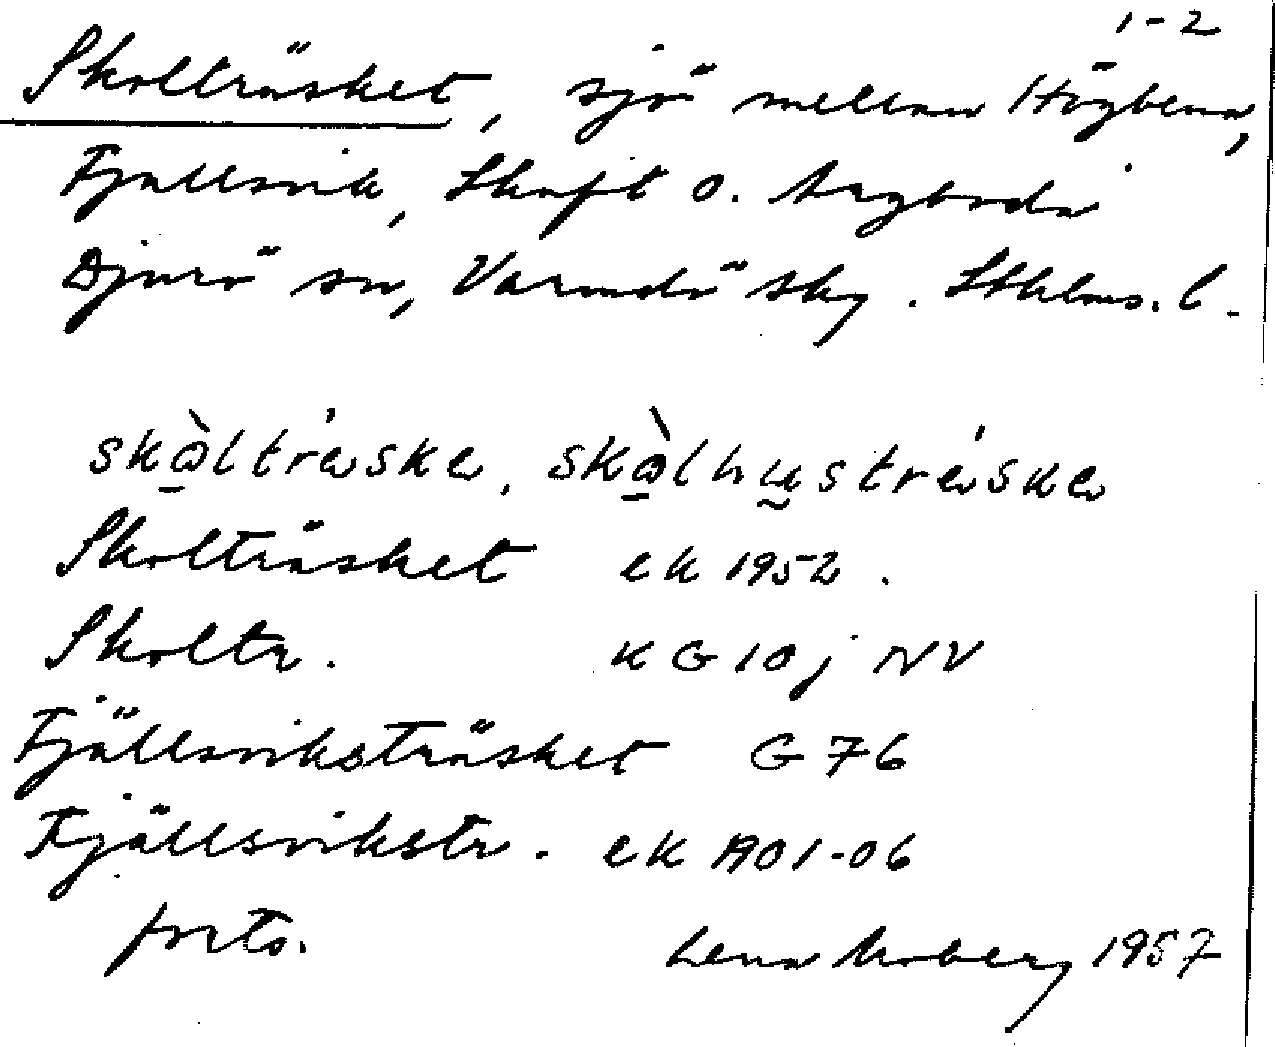 1-2
Skolträsket, sjö mellan Högbena,
Fjällsvik, Skaft o. Aagboda
Djurö sn, Värmdö skg. Sthlms. l.
skòltráske, skòlhustráske
Skolträsket ek 1952.
Skoltr. K G 10 j NV
Fjällsviksträsket G 76
Fjällsvikstr. ek 1901-06
forts. Lena Moberg 1957